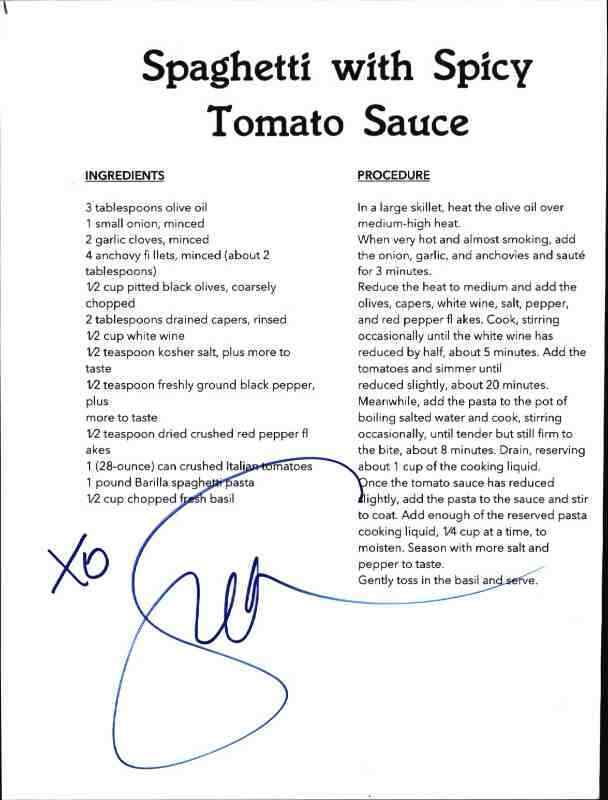 Spaghetti with Spicy
Tomato Sauce
INGREDIENTS
3 tablespoons olive oil
1 small onion, minced
2 garlic cloves, minced
4 anchovy fi llets, minced (about 2
tablespoons)
1/2 cup pitted black olives, coarsely
chopped
2 tablespoons drained capers, rinsed
1/2 cup white wine
1/2 teaspoon kosher salt, plus more to
taste
1/2 teaspoon freshly ground black pepper,
plus
more to taste
1/2 teaspoon dried crushed red pepper fl
akes
1 (28-ounce) can crushed Italian tomatoes
1 pound Barilla spaghetti pasta
1/2 cup chopped fresh basil
PROCEDURE
In a large skillet, heat the olive oil over
medium-high heat.
When very hot and almost smoking, add
the onion, garlic, and anchovies and sauté
for 3 minutes.
Reduce the heat to medium and add the
olives, capers, white wine, salt, pepper,
and red pepper fl akes. Cook, stirring
occasionally until the white wine has
reduced by half, about 5 minutes. Add the
tomatoes and simmer until
reduced slightly, about 20 minutes.
Meanwhile, add the pasta to the pot of
boiling salted water and cook, stirring
occasionally, until tender but still firm to
the bite, about 8 minutes. Drain, reserving
about 1 cup of the cooking liquid.
Once the tomato sauce has reduced
slightly, add the pasta to the sauce and stir
to coat. Add enough of the reserved pasta
cooking liquid, 1/4 cup at a time, to
moisten. Season with more salt and
pepper to taste.
Gently toss in the basil and serve.
XO